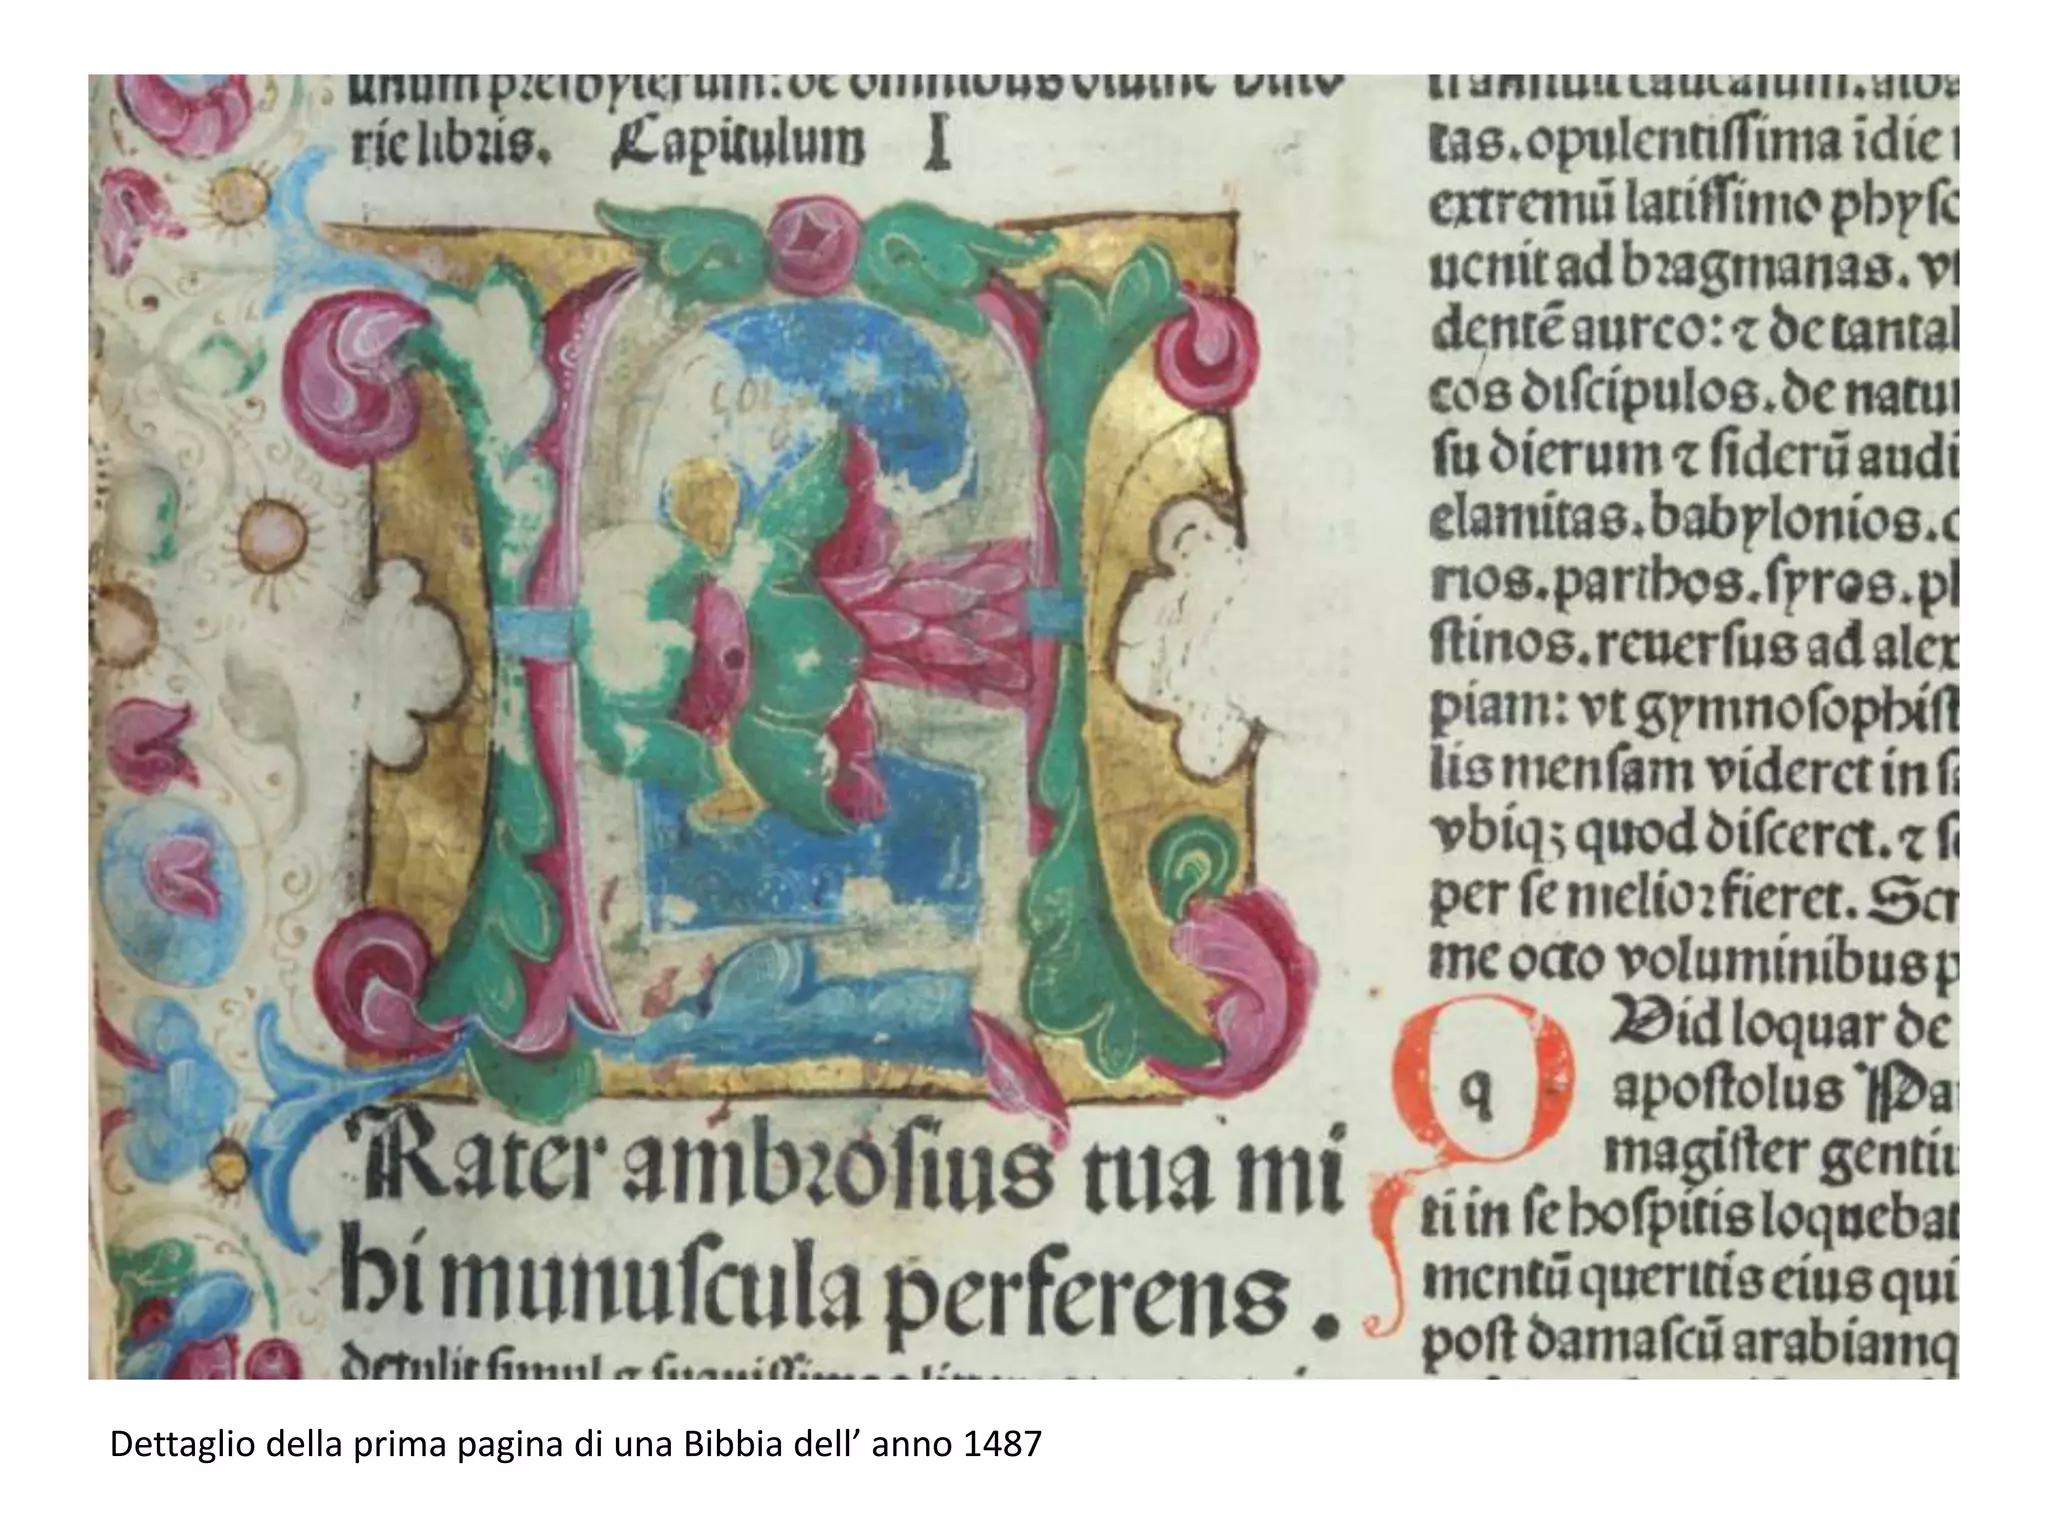 unum presbyterum: de omnibus diuine histo
rie libris. Capitulum I
Rater ambrosius tua mi
hi munuscula perferens.
detulit simul ⁊ suauissimas
tas. opulentissima idie
extremū latissimo physo
uenit ad bragmanas. vt
dentē aureo: ⁊ de tantal
cos discipulos. de natur
su dierum ⁊ siderū audi
elamitas. babylonios. c
rios. parthos. syros. ph
stinos. reuersus ad alex
piam: vt gymnosophist
lis mensam videret in s
vbiq; quod disceret. ⁊ se
per se melior fieret. Scr
me octo voluminibus p
q Vid loquar de
apostolus Pa
magister gentiu
ti in se hospitis loquebat
mentū queritis eius qui
post damascū arabiamq
Dettaglio della prima pagina di una Bibbia dell’ anno 1487